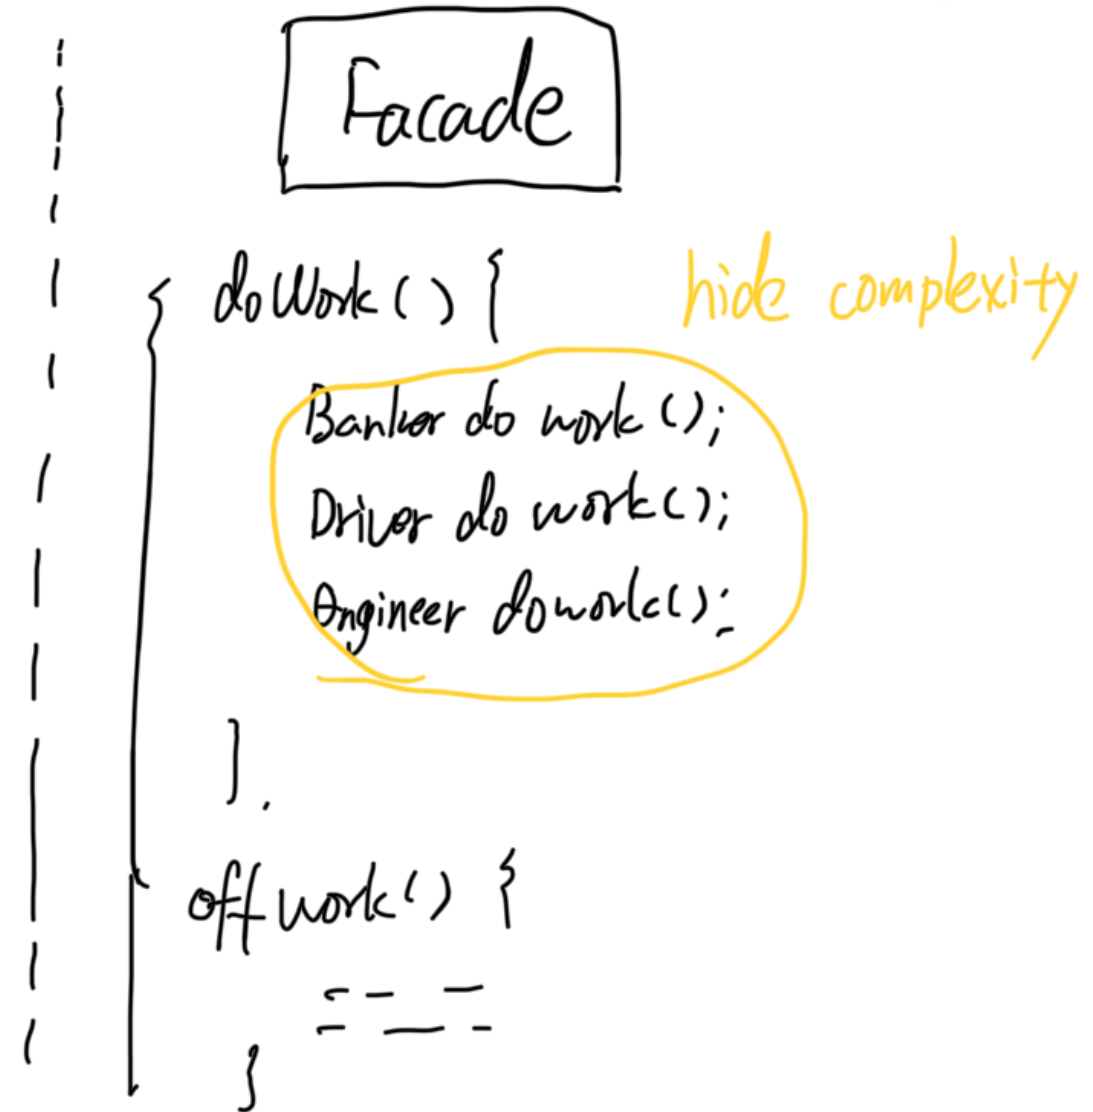 Facade
doWork() {
hide complexity
Banker do work();
Driver do work();
Engineer dowork();
}.
offwork() {
}